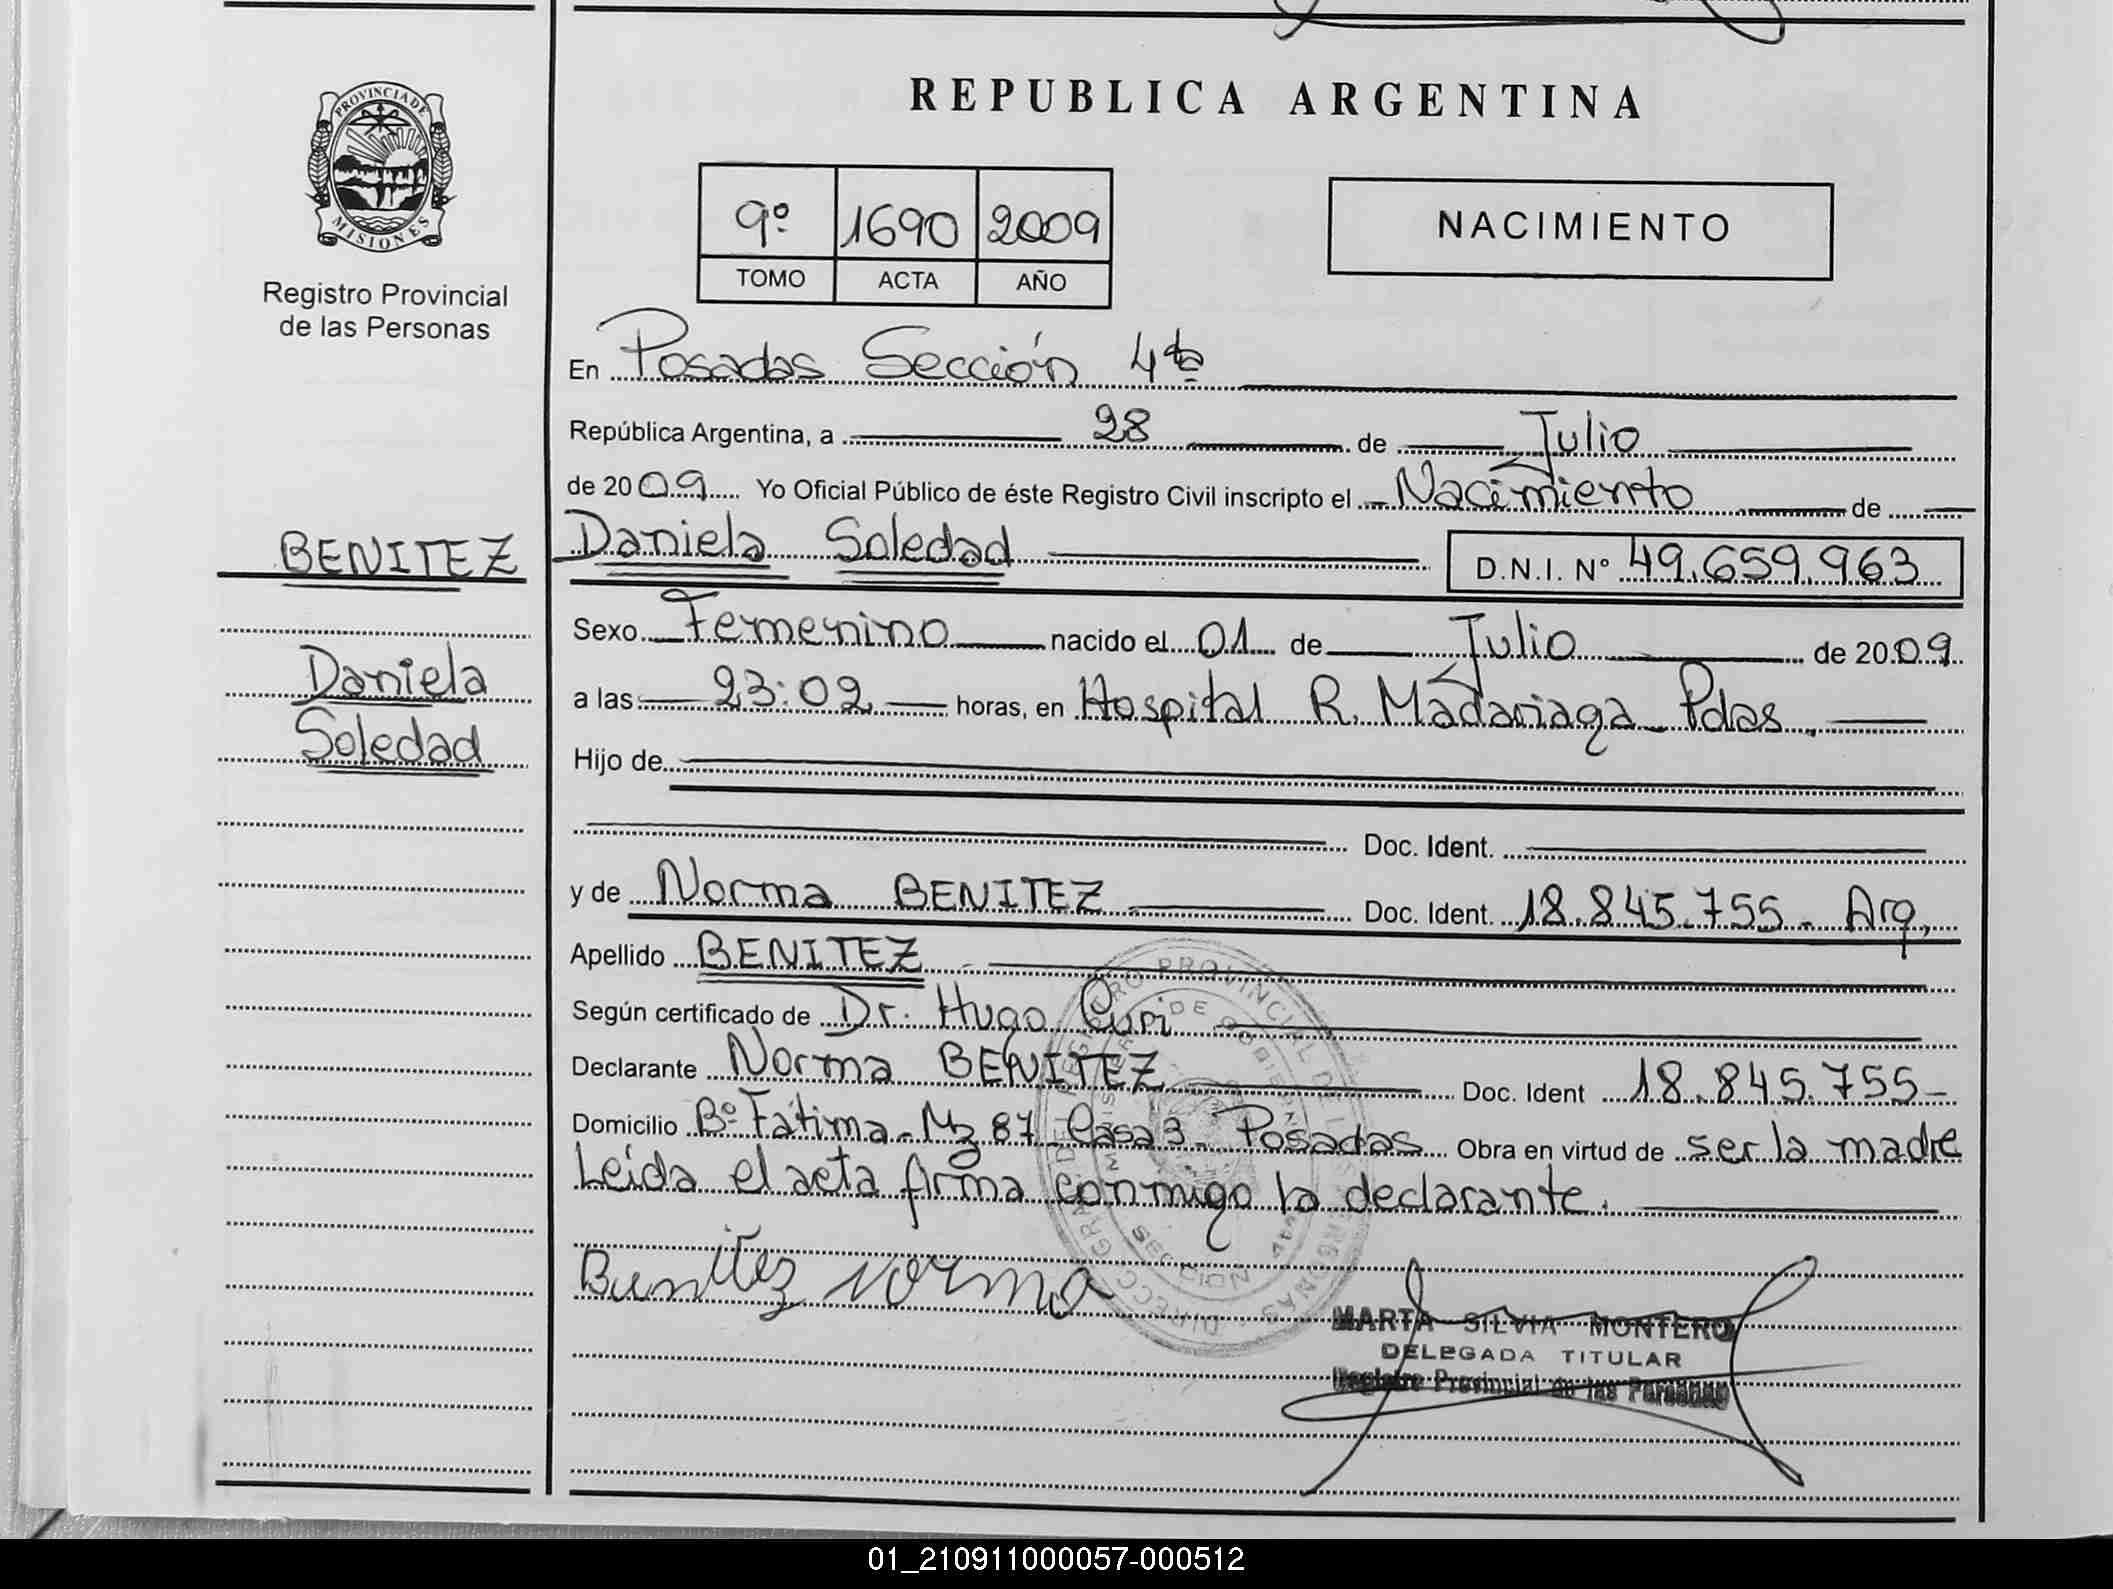 REPUBLICA ARGENTINA
PROVINCIA DE
MISIONES
Registro Provincial
de las Personas
9º 1690 2009
TOMO ACTA AÑO
NACIMIENTO
En Posadas Sección 4ta
República Argentina, a 28 de Julio
de 2009 Yo Oficial Público de éste Registro Civil inscripto el Nacimiento de
BENITEZ
Daniela
Soledad
Daniela Soledad D.N.I. Nº 49.659.963
Sexo Femenino nacido el 01 de Julio de 2009
a las 23:02 horas, en Hospital R. Madariaga Pdas.
Hijo de
Doc. Ident.
y de Norma BENITEZ Doc. Ident. 18.845.755 - Arg.
Apellido BENITEZ
Según certificado de Dr. Hugo Curi
Declarante Norma BENITEZ Doc. Ident 18.845.755-
Domicilio Bº Fátima - Mz 87 - Casa 3 - Posadas Obra en virtud de ser la madre
Leida el acta firma conmigo la declarante.
Benitez Norma
MARTA SILVIA MONTERO
DELEGADA TITULAR
Registro Provincial de las Personas
01_210911000057-000512